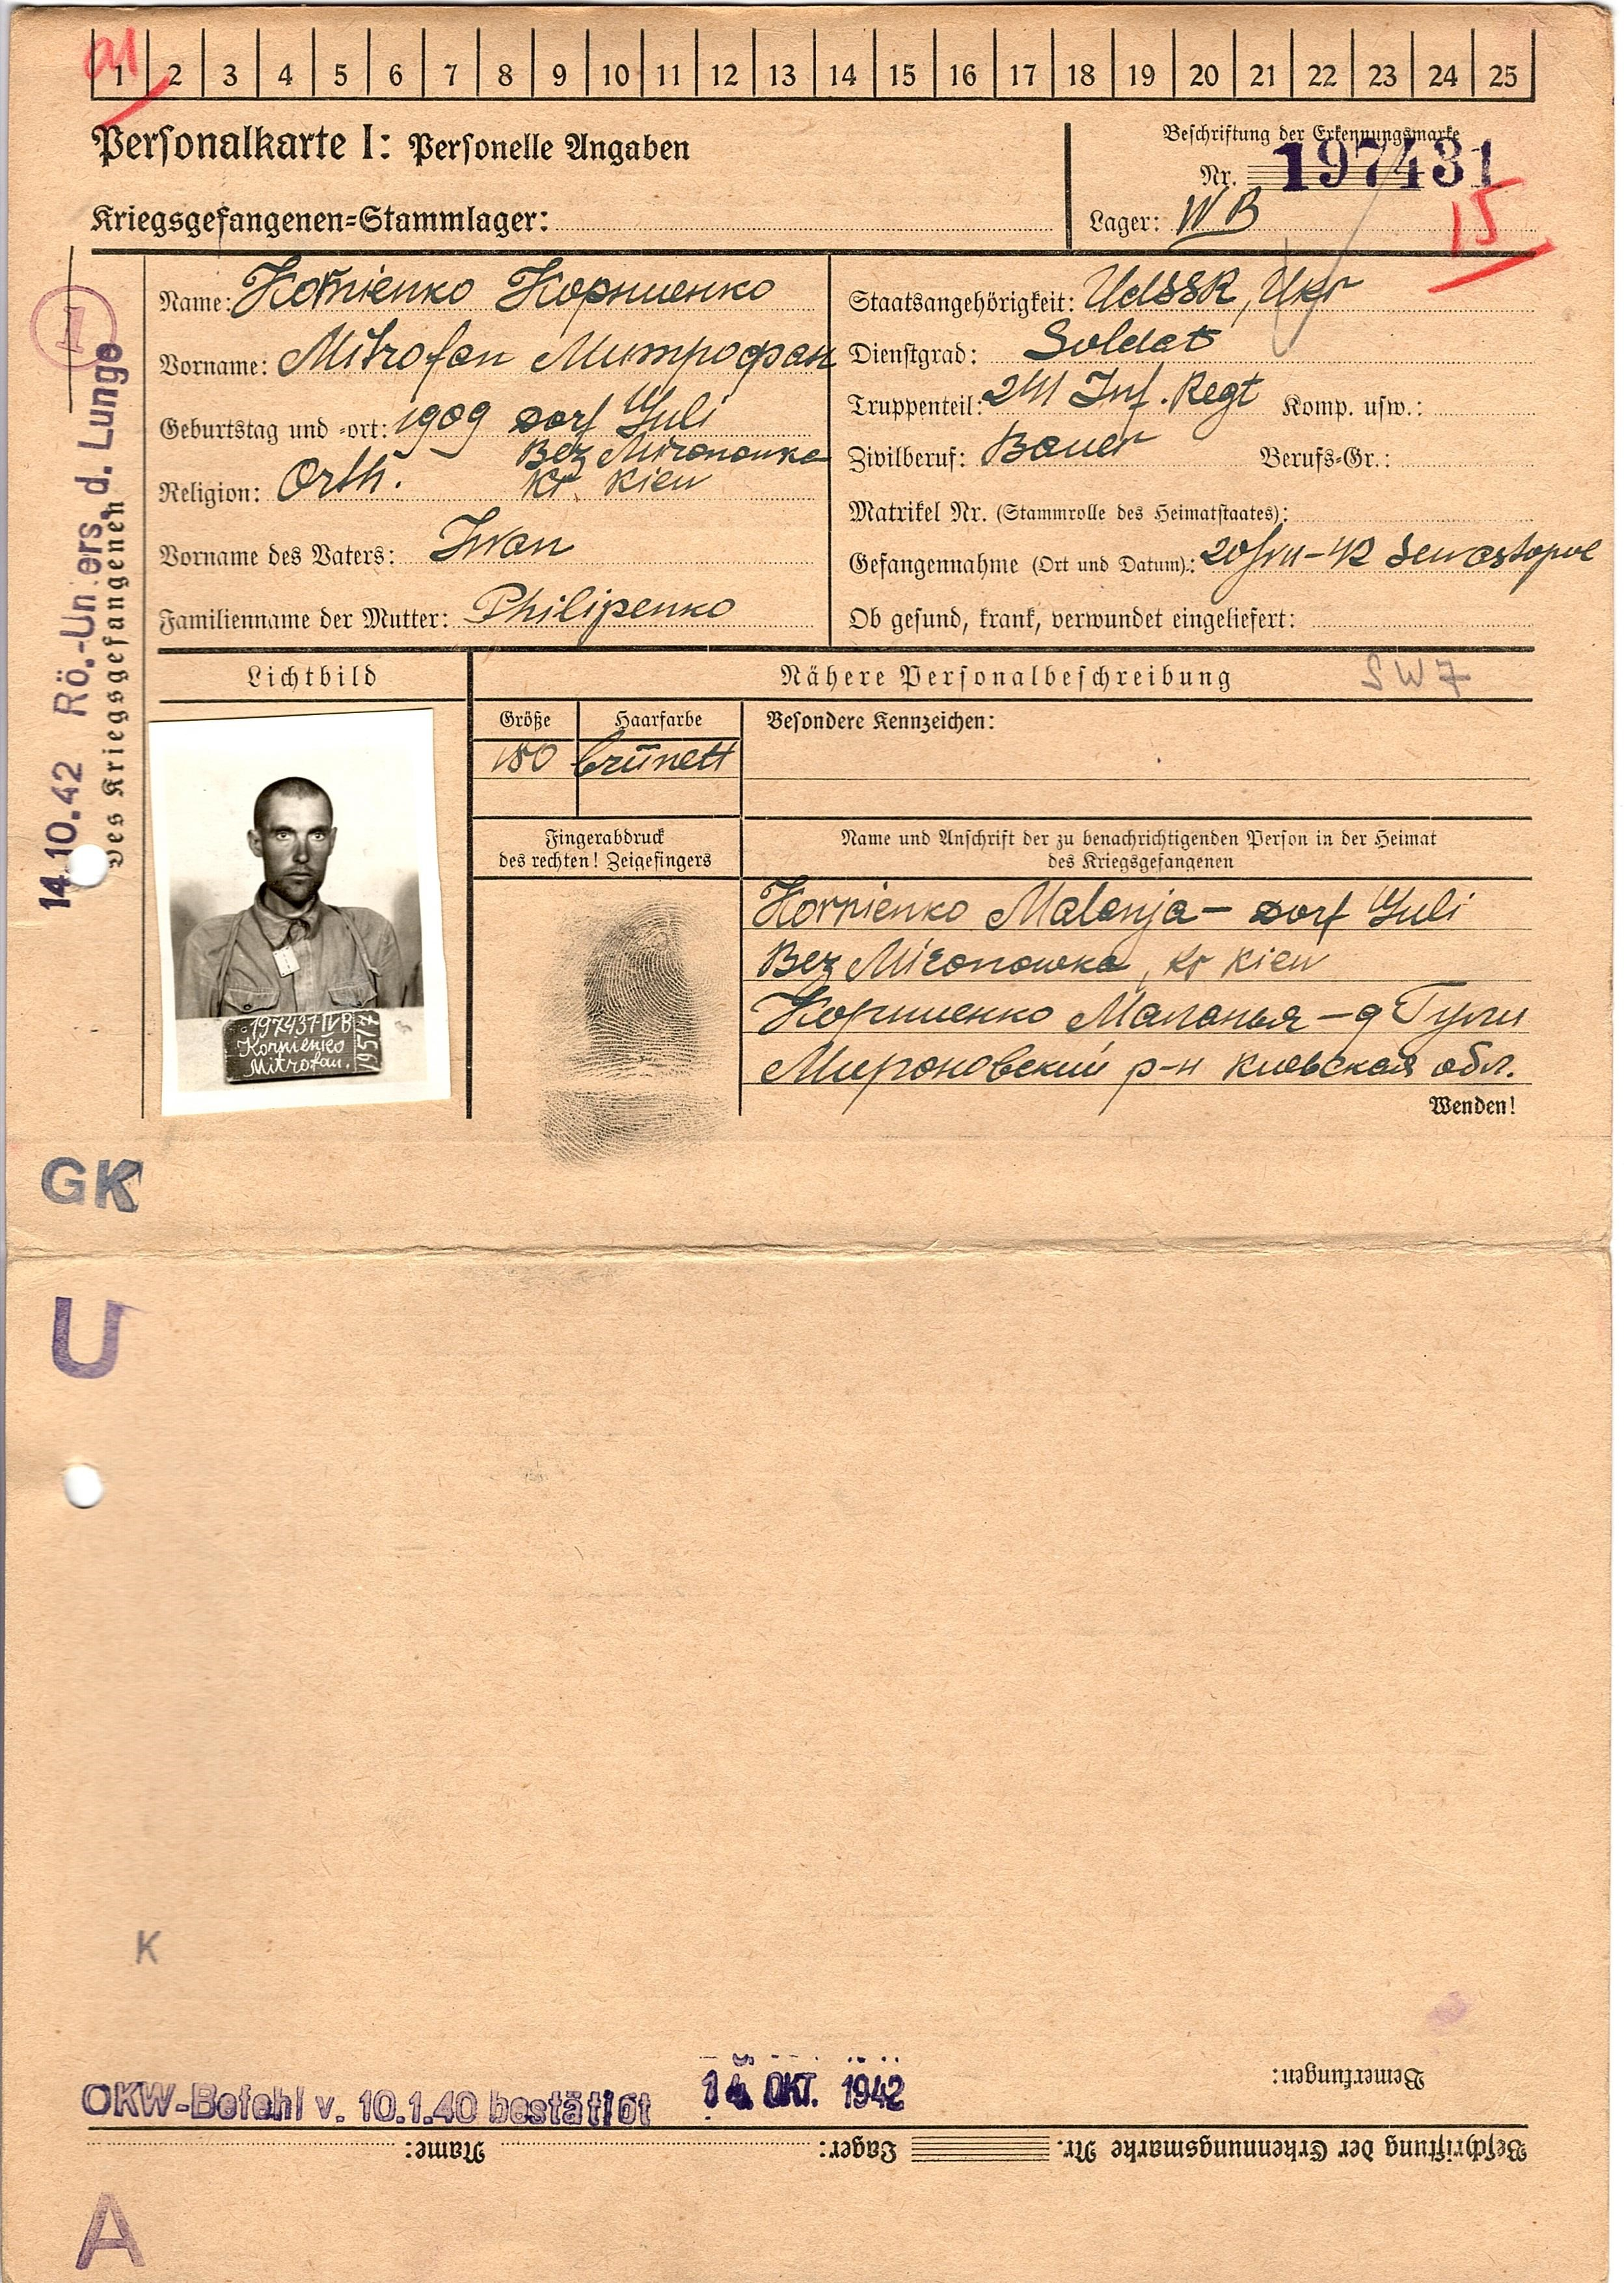 1 2 3 4 5 6 7 8 9 10 11 12 13 14 15 16 17 18 19 20 21 22 23 24 25
Personalkarte I: Personelle Angaben
Beschriftung der Erkennungsmarke
Nr. 197431
Kriegsgefangenen=Stammlager:
Lager: IV B
15
Name: Kornienko Корниенко
Vorname: Mitrofan Митрофан
Geburtstag und =ort: 1909 Dorf Guli
Bez Mironowka
Religion: Orth. Kr. Kiew
Vorname des Vaters: Iwan
Familienname der Mutter: Philipenko
Staatsangehörigkeit: UdSSR, Ukr
Dienstgrad: Soldat
Truppenteil: 241 Inf. Regt Komp. usw.:
Zivilberuf: Bauer Berufs=Gr.:
Matrikel Nr. (Stammrolle des Heimatstaates):
Gefangennahme (Ort und Datum): 42 Sewastopol
Ob gesund, krank, verwundet eingeliefert:
14.10.42 Rö.-Unters. d. Lunge
des Kriegsgefangenen
Lichtbild
Nähere Personalbeschreibung SW7
Größe Haarfarbe Besondere Kennzeichen:
180 brünett
Fingerabdruck
des rechten! Zeigefingers
Name und Anschrift der zu benachrichtigenden Person in der Heimat
des Kriegsgefangenen
Kornienko Malanja – Dorf Guli
Bez Mironowka, Kr Kiew
Корниенко Маланья – д Гули
Мироновский р-н Киевская обл.
Wenden!
197431 IV B
Kornienko
Mitrofan.
GK
U
K
Bemerkungen:
OKW-Befehl v. 10.1.40 bestätigt 14. OKT. 1942
Beschriftung der Erkennungsmarke Nr. Lager: Name:
A